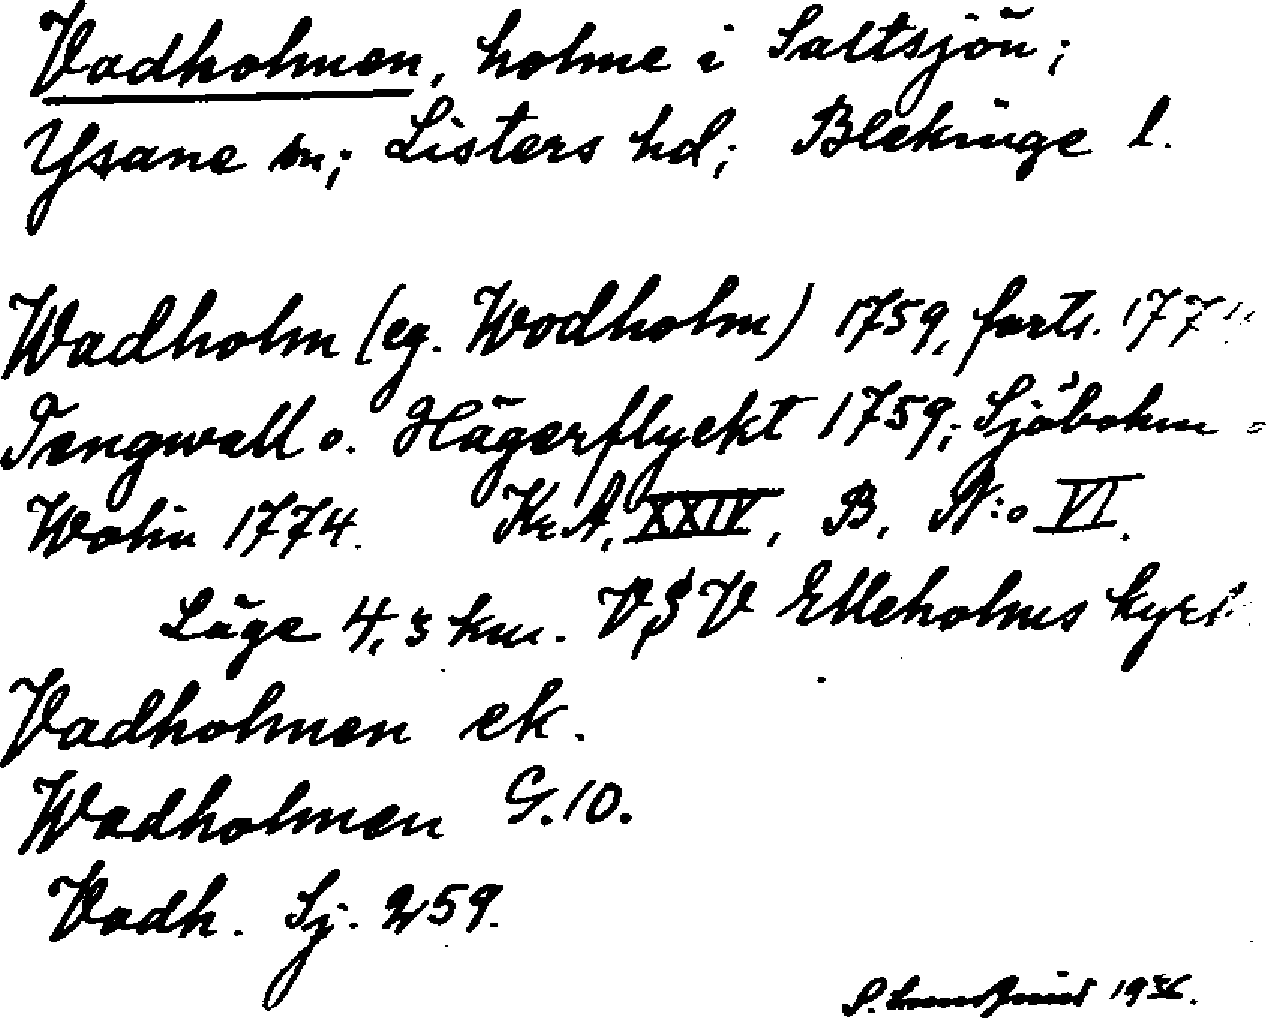 Vadholmen, holme i Saltsjön;
Ysane sn; Listers hd; Blekinge l.
Wadholm (eg. Wodholm) 1759, forts. 1774
Tengwall o. Hägerflyckt 1759; Sjöbohm -
Wolin 1774. Kr.A. XXIV, B, N:o VI.
Läge 4,3 km. V.S.V Elleholms kyrk
Vadholmen ek.
Wadholmen G.10.
Vadh. Sj. 259.
S. 19